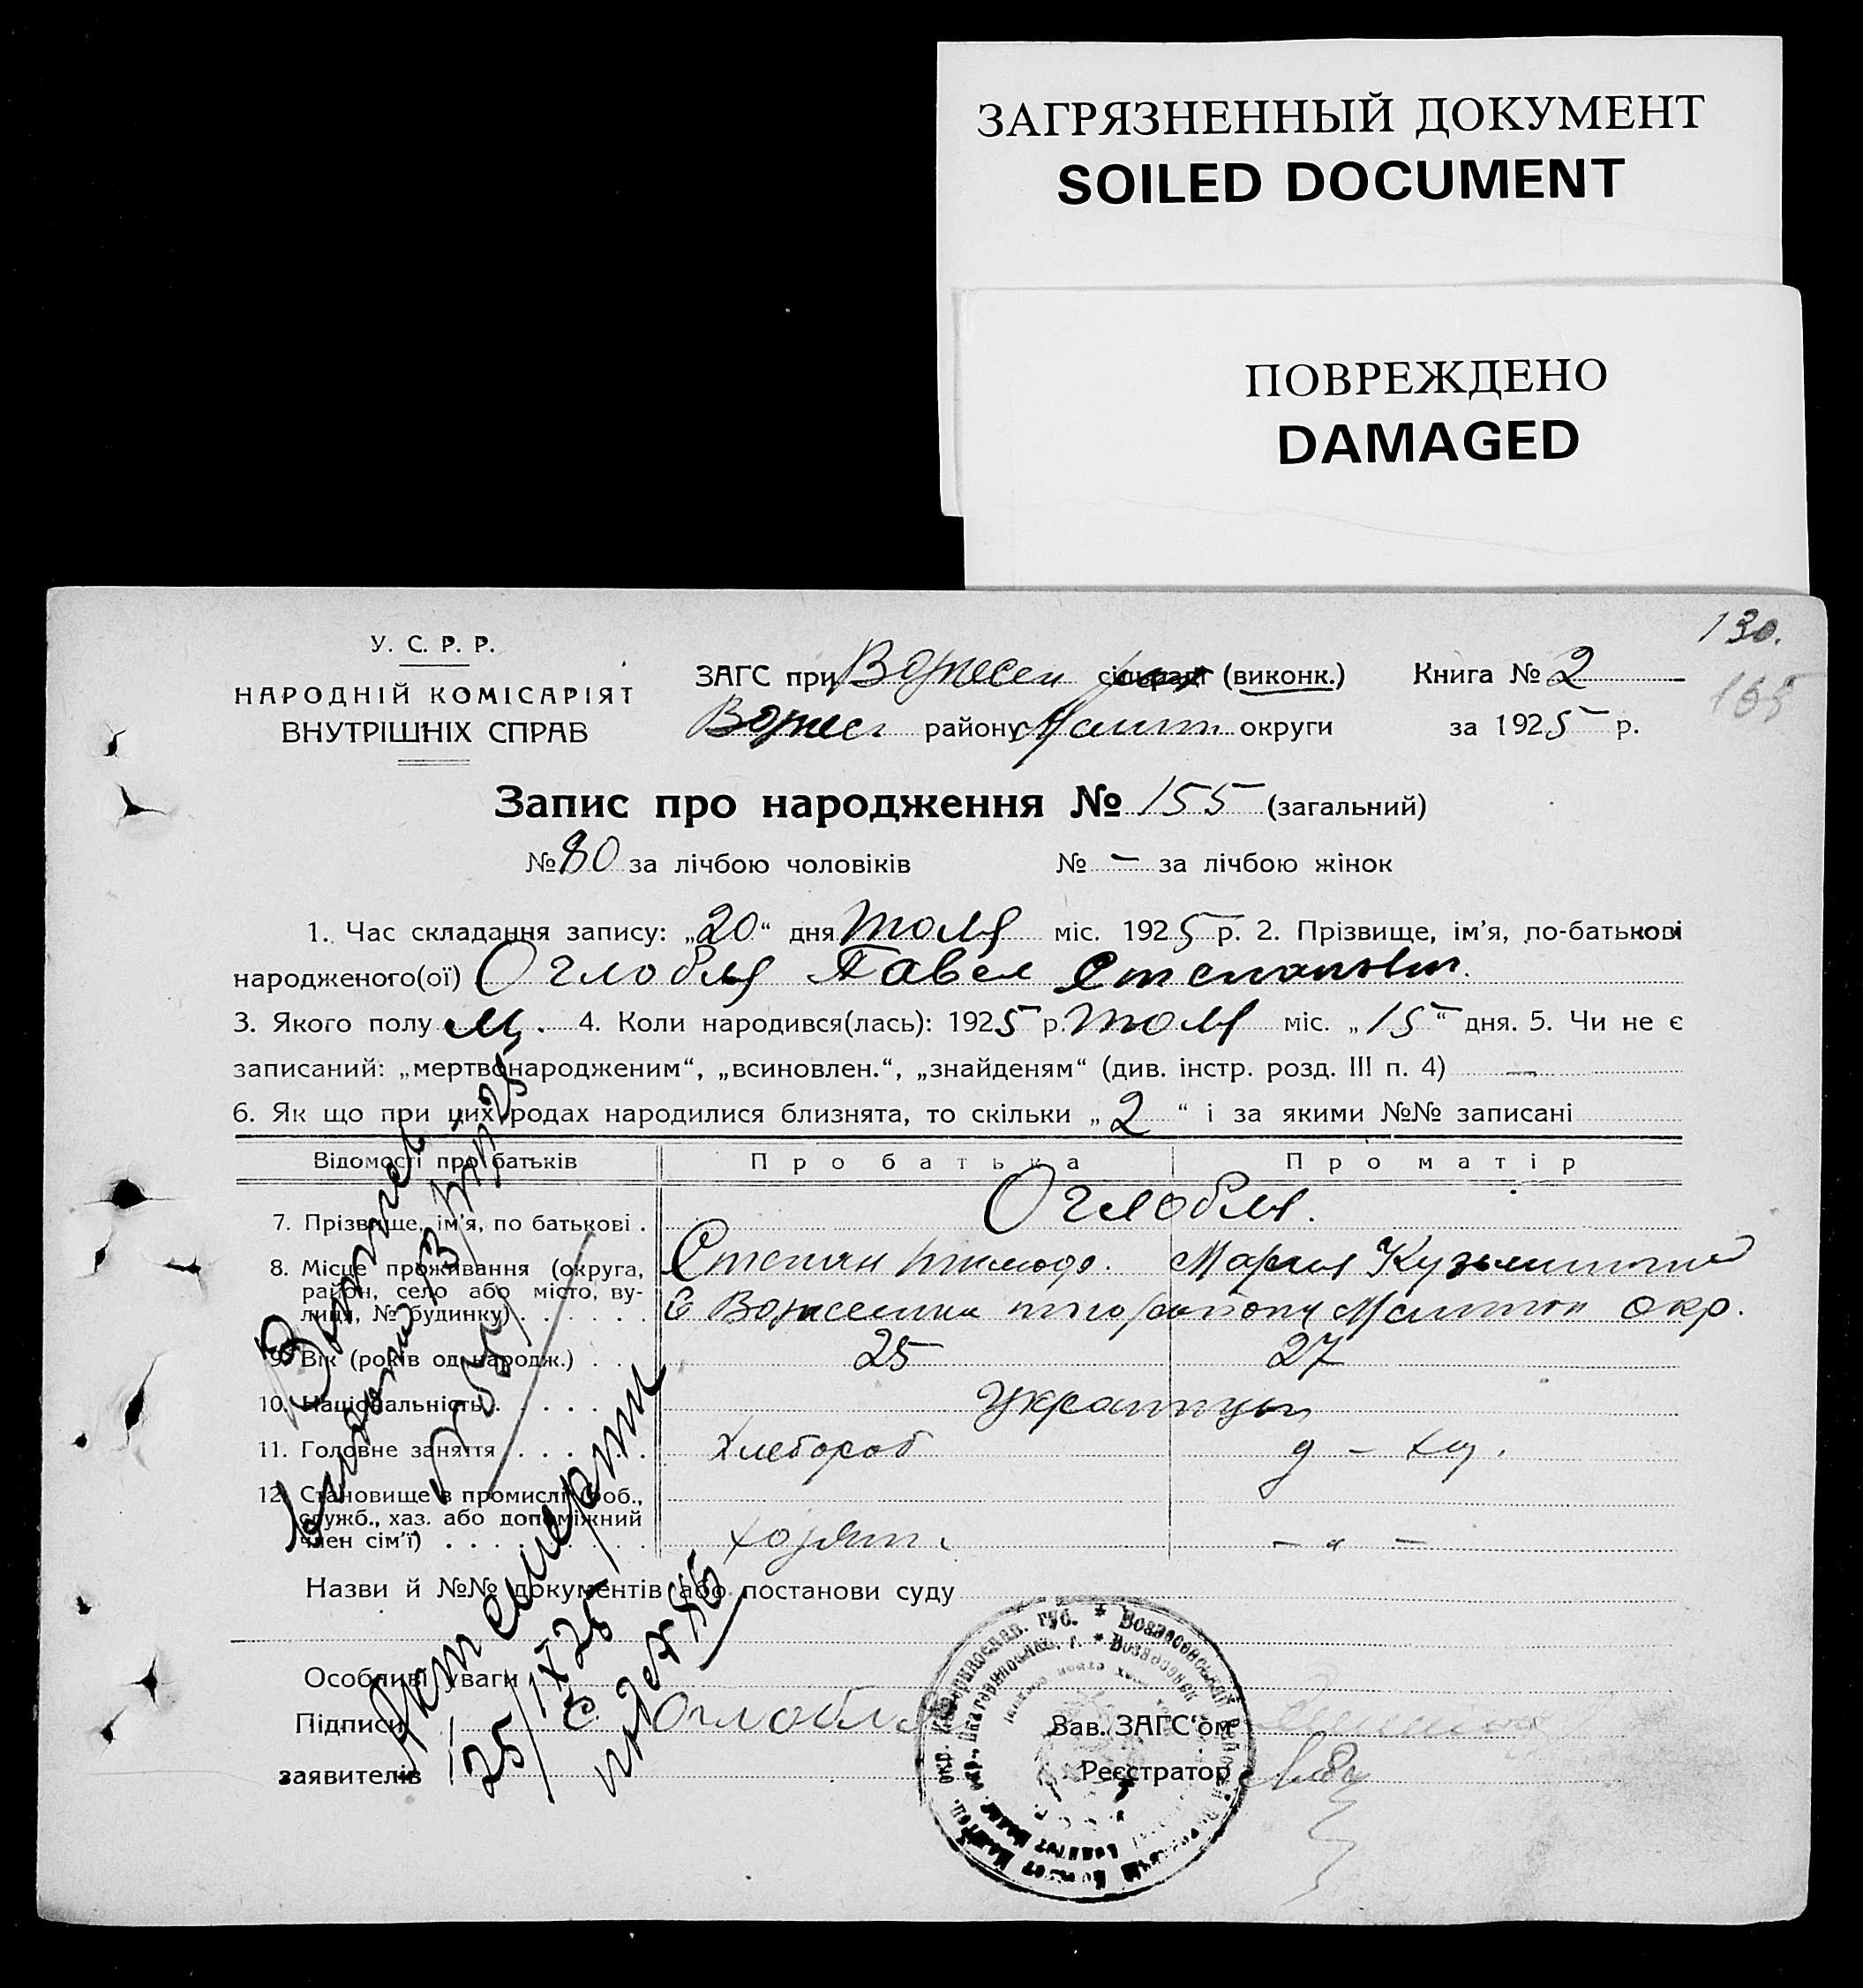 ЗАГРЯЗНЕННЫЙ ДОКУМЕНТ
SOILED DOCUMENT
ПОВРЕЖДЕНО
DAMAGED
130.
165
У. С. Р. Р.
НАРОДНІЙ КОМІСАРІЯТ
ВНУТРІШНІХ СПРАВ
ЗАГС при Вознесен сільраді (виконк.) Книга № 2
Вознес району Меліт округи за 1925 р.
Запис про народження № 155 (загальний)
№ 80 за лічбою чоловіків № — за лічбою жінок
1. Час складання запису: „20“ дня июля міс. 1925 р. 2. Прізвище, ім'я, по-батькові
народженого(ої) Оглобля Павел Степанович.
3. Якого полу м. 4. Коли народився(лась): 1925 р. июля міс. „15“ дня. 5. Чи не є
записаний: „мертвонародженим“, „всиновлен.“, „знайденям“ (див. інстр. розд. III п. 4) —
6. Як що при цих родах народилися близнята, то скільки „2“ і за якими №№ записані
Відомості про батьків Про батька Про матір
7. Прізвище, ім'я, по батькові . Оглобля.
8. Місце проживання (округа, Степан Тимофе. Мария Кузьминична
район, село або місто, ву-
лиця, № будинку) . . . . . . С Вознесенка того района Мелитоп окр.
9. Вік (років од народж.) . . . 25 27
10. Національність . . . . . . Украинцы
11. Головне заняття . . . . . . Хлебороб д – хоз.
12. Становище в промислі (роб.,
служб., хаз. або допоміжний
член сім'ї) . . . . . . . . . хозяин – „ –
Назви й №№ документів або постанови суду
Особливі уваги
Підписи С Оглобля Зав. ЗАГС'ом
заявителів Реєстратор
Акт смерти
25/IX 25